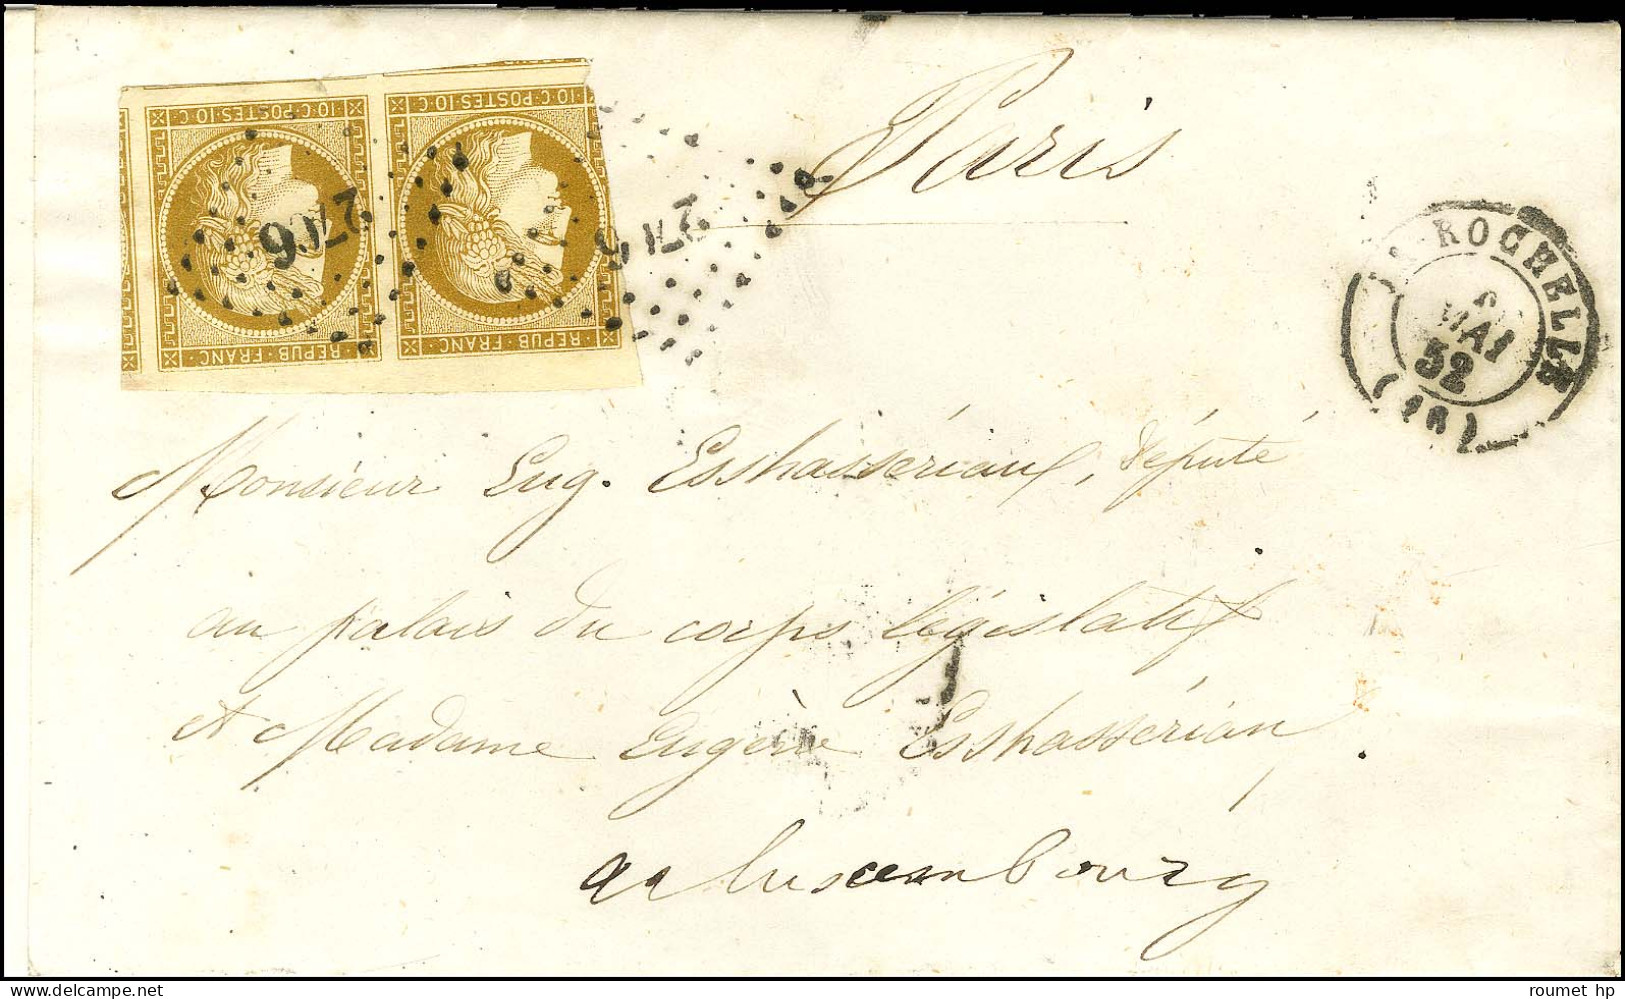 Paris
10·C·POSTES·10·C
10·C·POSTES·10·C
REPUB·FRANC
REPUB·FRANC
ROCHELLE
MAI
52
(16)
Monsieur Eug. Esshassériaux, député
au palais du corps législatif
et Madame Eugène Esshassérian
au luxembourg
roumet hp